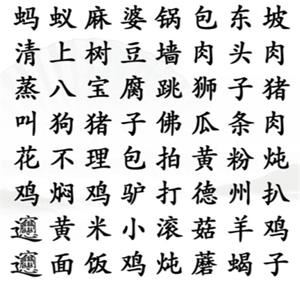 蚂蚁麻婆锅包东坡
清上树豆墙肉头肉
蒸八宝腐跳狮子猪
叫狗猪子佛瓜条肉
花不理包拍黄粉炖
鸡焖鸡驴打德州扒
𰻞黄米小滚菇羊鸡
𰻞面饭鸡炖蘑蝎子